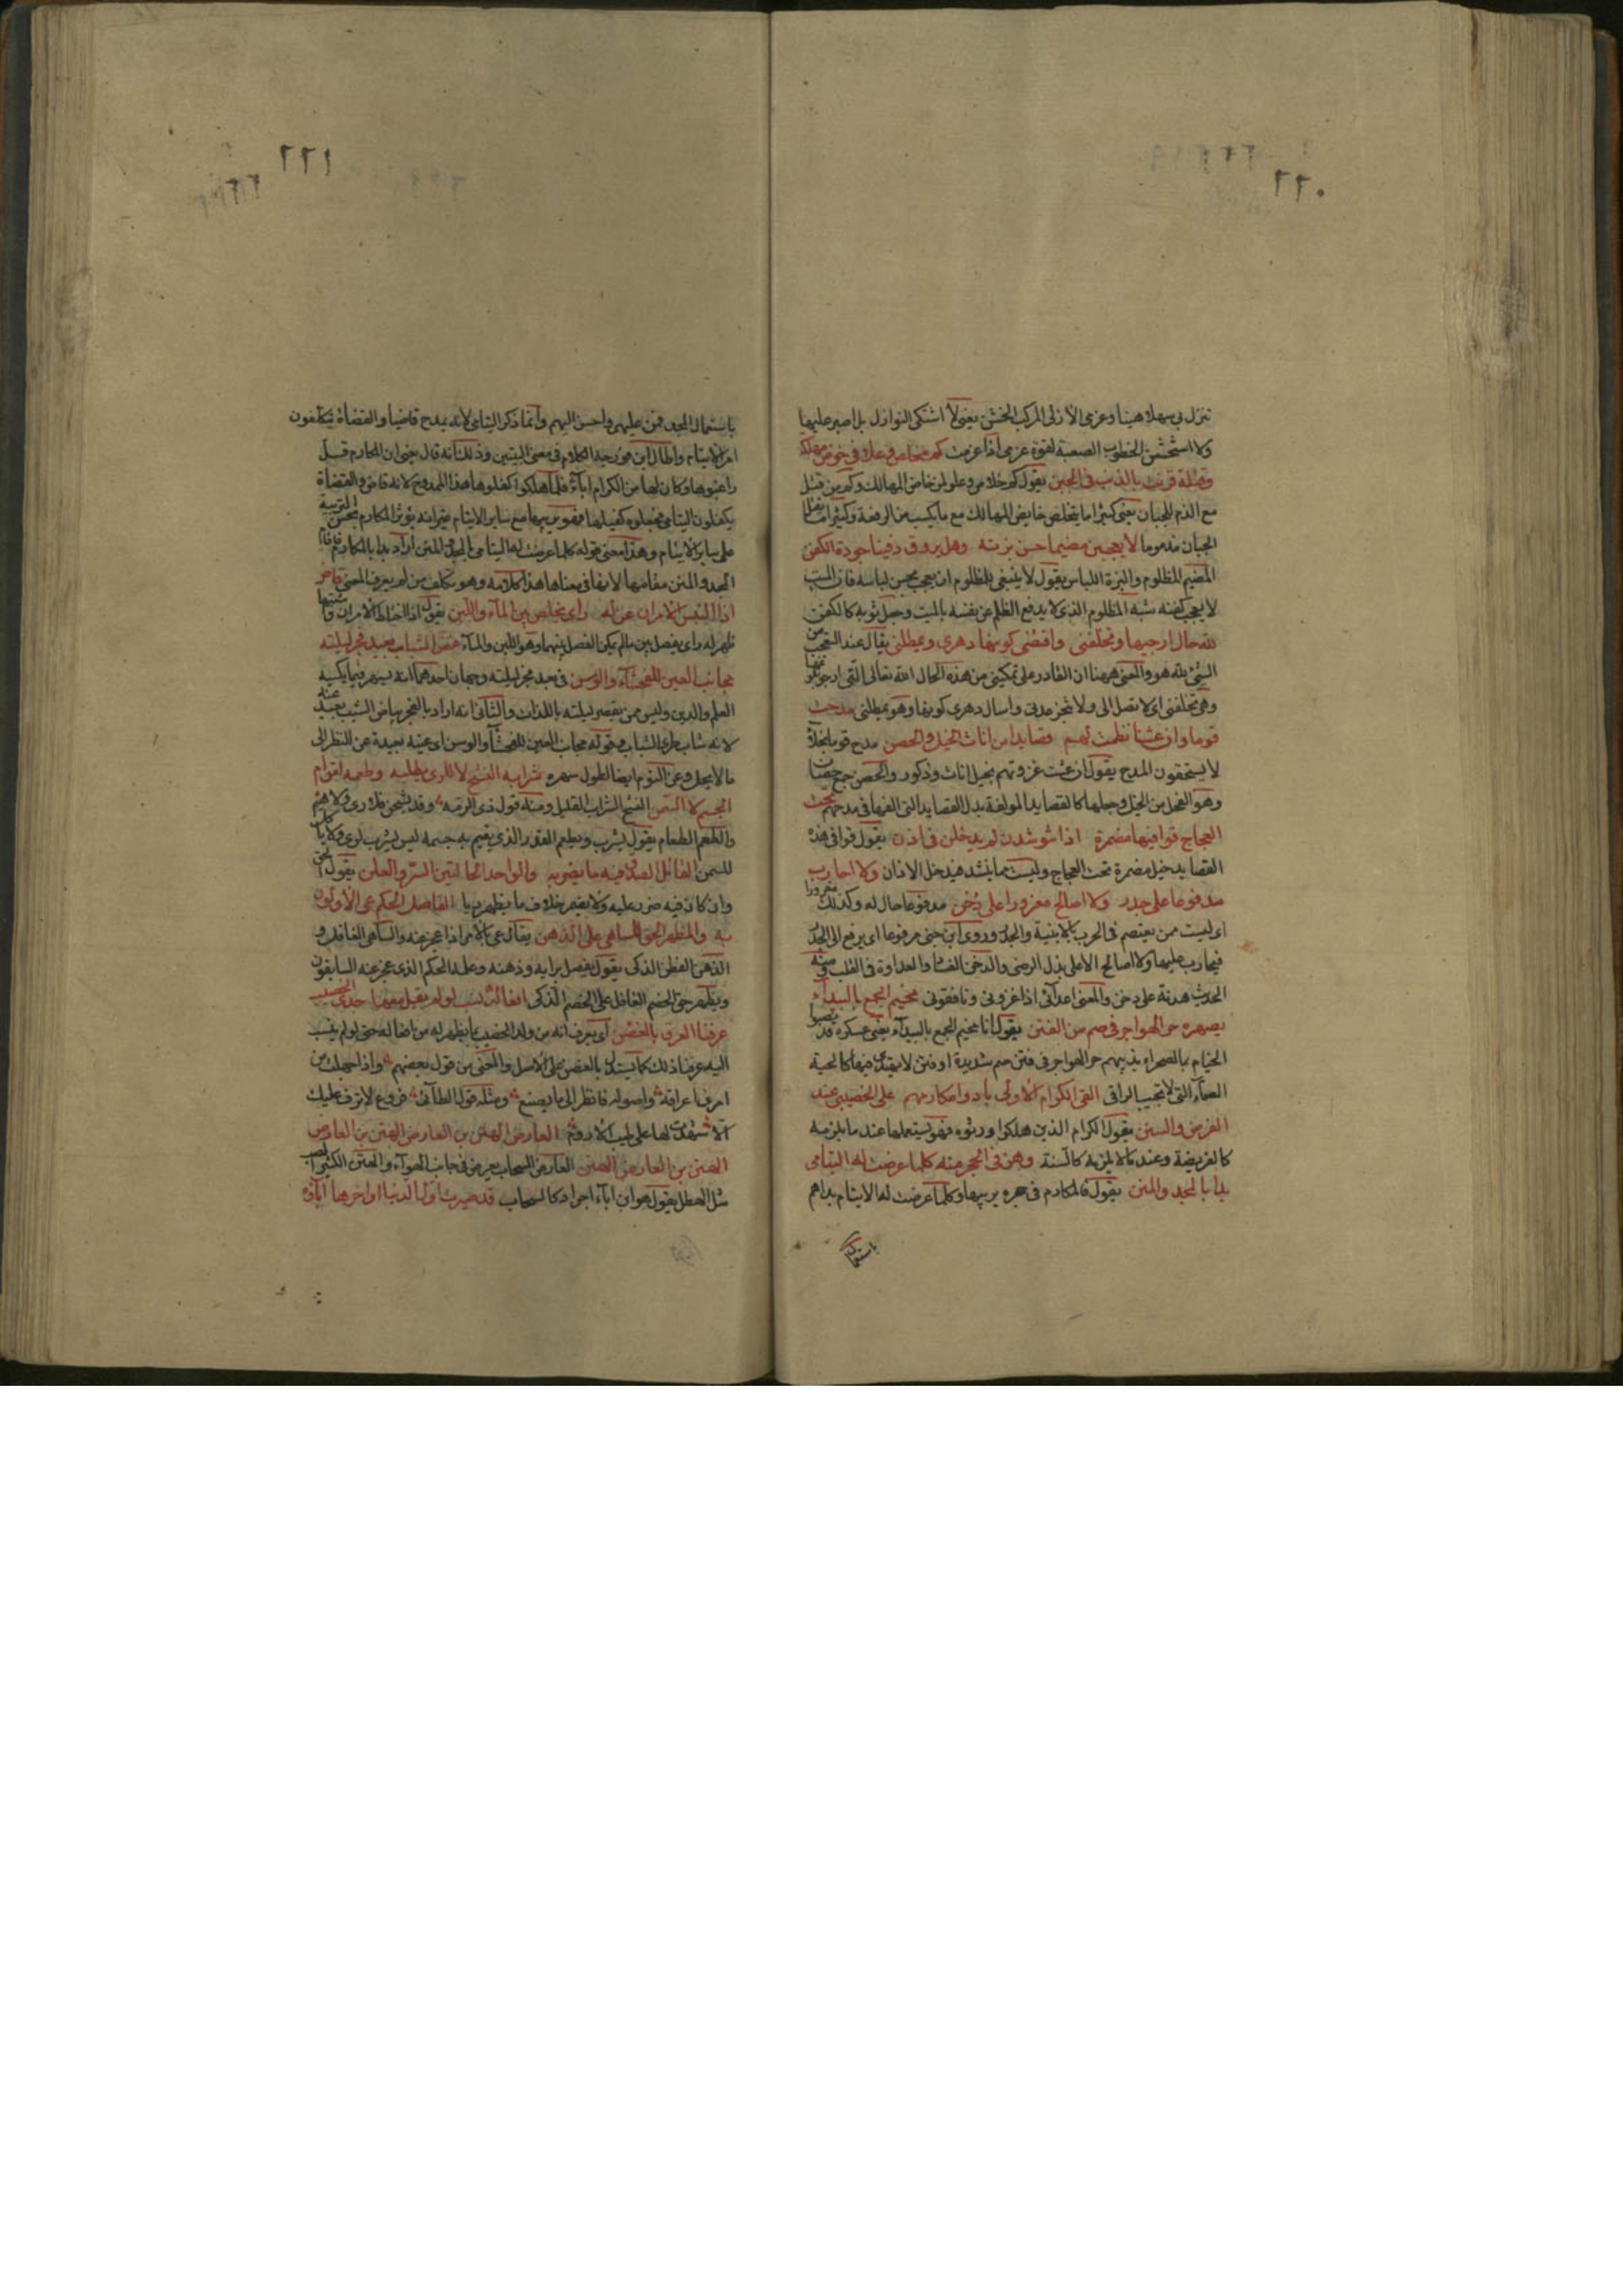 ٢٢٠
تنزل بي سهلا هينا وعزمي الازلى المركب الخشن يعني لا اشتكي النوازل بل اصبر عليها
ولا استخشن الخطوب الصعبة لقوة عزمي اذا عزمت كم مخلص وعلا في خوض مهلكة
وقتلة قرنت بالذم في الجبن يقول كم خلاص وعلو لمن خاض المهالك وكم من قتل
مع الذم للجبان يعني كثيرا ما يتخلص خايض المهالك مع ما يكسب من الرفعة وكثيرا ما يقتل
الجبان مذموما لا يعجبن مضيما حسن بزته وهل يروق دفينا جودة الكفن
المضيم المظلوم والبزة اللباس يقول لا ينبغي للمظلوم ان يعجب بحسن لباسه فان الميت
لا يعجب كفنه شبه المظلوم الذي لا يدفع الظلم عن نفسه بالميت وجعل ثوبه كالكفن
لله حال ارجيها وتخلفني واقتضي كونها دهري ويمطلني يقال عند التعجب من
الشئ لله هو والمعنى ههنا ان القادر على تمكيني من هذه الحال الله تعالى التي ارجو تمامها
وهي تخلفني اي لا تصل الي ولا تنجز عدتي واسال دهري كونها وهو يمطلني مدحت
قوما وان عشنا نظمت لهم قصايدا من اناث الخيل والحصن مدح قوما بخلاء
لا يستحقون المدح يقول ان عشت غزوتهم بخيل اناث وذكور والحصن جمع حصان
وهو الفحل من الخيل وجعلها كالقصايد المولفة بدل القصايد التي الفها في مدحهم تحت
العجاج قوافيها مضمرة اذا تنوشدن لم يدخلن في اذن يقول قوافي هذه
القصايد خيل مضمرة تحت العجاج وليست مما ينشد فيدخل الاذان ولا احارب
مدفوعا على جدر ولا اصالح مغرورا على دخن مدفوعا حال له وكذلك مغرورا
اى لست ممن يعتصم في الحرب بالابنية والجدر وروى ابن جني مرفوعا اى يرفع الى الجدر
فيحارب عليها ولا اصالح الاعلى بذل الرضى والدخن الفساد والعداوة في القلب ومنه
الحديث هدنة على دخن والمعنى اعدائي اذا غزوني ونافقوني مخيم الجمع بالبيداء
يصهره حر الهواجر في صم من الفتن يقول انا مخيم الجمع بالبيداء يعني عسكره قد نصبوا
الخيام بالصحراء يذيبهم حر الهواجر في فتن صم شديدة او فتن لا يهتدى فيها كالحية
الصماء التي لا تجيب الراقي القى الكرام الاولى بادوا مكارمهم على الخصيبي عند
الفرض والسنن يقول الكرام الذين هلكوا ورثوه فهو يستعملها عند ما يلزمه
كالفريضة وعند ما لا يلزمه كالسنة وهن في الحجر منه كلما عرضت له اليتامى
بدا بالمجد والمنن يقول فالمكارم في حجره يربيها وكلما عرضت له الايتام بدا هم
باستعمال
٢٢١
باستعمال المجد فمن عليهم واحسن اليهم وانما ذكر اليتامى لانه يمدح قاضيا والقضاة يتكلفون
امر الايتام واطال ابن فورجه الكلام في معنى البيتين وذلك انه قال يعني ان المكارم قل
راغبوها وكان لها من الكرام اباء فلما هلكوا كفلوها هذا الممدوح لانه قاض والقضاة
يكفلون اليتامى فجعلوه كفيلها فهو يربيها مع ساير الايتام غير انه يؤثر المكارم بحسن التربية
على ساير الايتام وهذا معنى قوله كلما عرضت له اليتامى بدا بالمجد والمنن اراد بدا بالمكارم فاقام
المجد والمنن مقامها لانها في معناها هذا كلامه وهو تكلف من لم يعرف المعنى قاض
اذا التبس الامران عن له رأى يخلص بين الماء واللبن يقول اذا اختلط الامران واشتبها
ظهر له رأى يفصل بين ما لم يكن الفصل بينهما وهو اللبن والماء غض الشباب بعيد فجر ليلته
مجانب العين للفحشاء والوسن في بعد فجر ليلته وجهان احدهما انه يسهر فيما يكسبه
العلم والدين وليس ممن يقصر ليلته باللذات والثاني انه اراد بالفجر بياض الشيب بعيد عنه
لانه شاب طرى الشباب وقوله مجانب العين للفحشاء والوسن اى عينه بعيدة عن النظر الى
ما لا يحل وعن النوم ايضا لطول سهره شرابه النشح لا للرى يطلبه وطعمه لقوام
الجسم لا السمن النشح الشراب القليل ومنه قول ذي الرمة وقد نشحن فلا رى ولا هيم
والطعم الطعام يقول يشرب ويطعم القدر الذي يقيم به جسمه ليس يشرب للرى ولا ياكل
للسمن القائل الصدق فيه ما يضر به والواحد الحالتين السر والعلن يقول الحق
وان كان فيه ضرر عليه ولا يضمر خلاف ما يظهر ريا الفاصل الحكم عى الاولون
به والمظهر الحق للساهى على الذهن يقال عى بالامر اذا عجز عنه والساهى الغافل و
الذهن الفطن الذكى يقول يفصل برايه وذهنه وعلمه الحكم الذي عجز عنه السابقون
ويظهر حق الخصم الغافل على الخصم الذكى افعاله نسب لو لم يقل معها جدى الخصيب
عرفنا العرق بالغصن اى يعرف انه من ولد الخصيب بما يظهر له من افعاله حتى لو لم ينتسب
اليه عرفنا ذلك كما يستدل بالغصن على الاصل والمعنى من قول بعضهم واذا جهلت من
امرئ اعراقه واصوله فانظر الى ما يصنع ومثله قول الطائي فروع لا ترف عليك
الا شهدت لها على طيب الاروم العارض الهتن بن العارض الهتن بن العارض
الهتن بن العارض الهتن العارض السحاب يعرض في جانب الهواء والهتن الكثير الصب
مثل الهطل يقول هو ابن اباء اجواد كالسحاب قد صيرت اول الدنيا اواخرها اباؤه